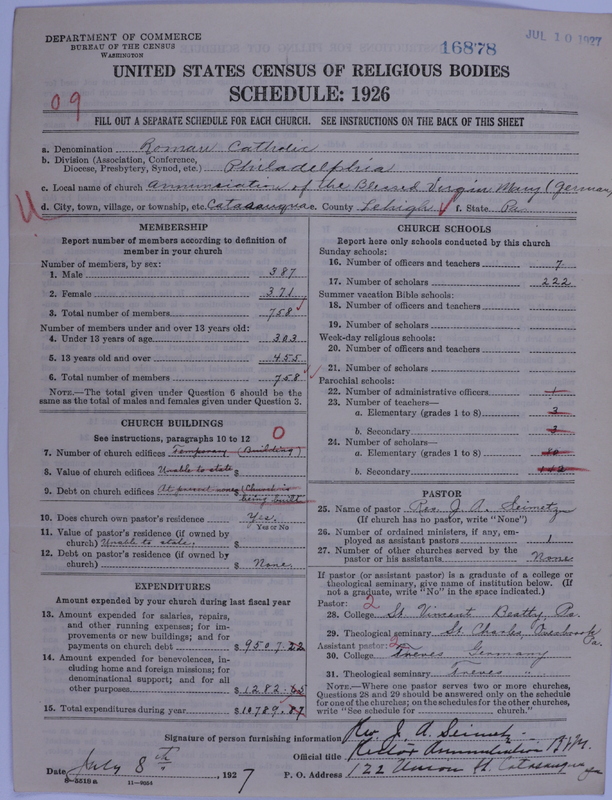 DEPARTMENT OF COMMERCE
BUREAU OF THE CENSUS
WASHINGTON
16878
JUL 10 1927
UNITED STATES CENSUS OF RELIGIOUS BODIES
SCHEDULE: 1926
09
FILL OUT A SEPARATE SCHEDULE FOR EACH CHURCH. SEE INSTRUCTIONS ON THE BACK OF THIS SHEET
a. Denomination Roman Catholic
b. Division (Association, Conference, Diocese, Presbytery, Synod, etc.) Philadelphia
c. Local name of church Annunciation of the Blessed Virgin Mary (German)
d. City, town, village, or township, etc. Catasauqua e. County Lehigh f. State Pa.
MEMBERSHIP
Report number of members according to definition of
member in your church
Number of members, by sex:
1. Male 387
2. Female 371
3. Total number of members 758
Number of members under and over 13 years old:
4. Under 13 years of age 303
5. 13 years old and over 455
6. Total number of members 758
NOTE.—The total given under Question 6 should be
the same as the total of males and females given under Question 3.
CHURCH BUILDINGS
See instructions, paragraphs 10 to 12
0
7. Number of church edifices Temporary (Building)
8. Value of church edifices Unable to state $
9. Debt on church edifices At present none $ (Church is
being built
10. Does church own pastor's residence Yes.
Yes or No
11. Value of pastor's residence (if owned by
church) Unable to state. $
12. Debt on pastor's residence (if owned by
church) $ None.
EXPENDITURES
Amount expended by your church during last fiscal year
13. Amount expended for salaries, repairs,
and other running expenses; for im-
provements or new buildings; and for
payments on church debt $ 9507.22
14. Amount expended for benevolences, in-
cluding home and foreign missions; for
denominational support; and for all
other purposes $ 1282.65
15. Total expenditures during year $ 10789.87
CHURCH SCHOOLS
Report here only schools conducted by this church
Sunday schools:
16. Number of officers and teachers 7
17. Number of scholars 222
Summer vacation Bible schools:
18. Number of officers and teachers
19. Number of scholars
Week-day religious schools:
20. Number of officers and teachers
21. Number of scholars
Parochial schools:
22. Number of administrative officers 1
23. Number of teachers—
a. Elementary (grades 1 to 8) 3
b. Secondary 3
24. Number of scholars—
a. Elementary (grades 1 to 8)
b. Secondary
PASTOR
25. Name of pastor Rev. J. A. Seimetz
(If church has no pastor, write "None")
26. Number of ordained ministers, if any, em-
ployed as assistant pastors 1
27. Number of other churches served by the
pastor or his assistants None
If pastor (or assistant pastor) is a graduate of a college or
theological seminary, give name of institution below. (If
not a graduate, write "No" in the space indicated.)
Pastor: 2
28. College St Vincent Beatty, Pa.
29. Theological seminary St Charles, Overbrook Pa.
Assistant pastor: 2
30. College Treves Germany
31. Theological seminary Treves "
NOTE.—Where one pastor serves two or more churches,
Questions 28 and 29 should be answered only on the schedule
for one of the churches; on the schedules for the other churches,
write "See schedule for ______ church."
Signature of person furnishing information Rev. J. A. Seimetz.
Official title Rector Annunciation B.V.M.
Date July 8th, 1927 P. O. Address 122 Union St Catasauqua Pa
8-5510a 11-8054